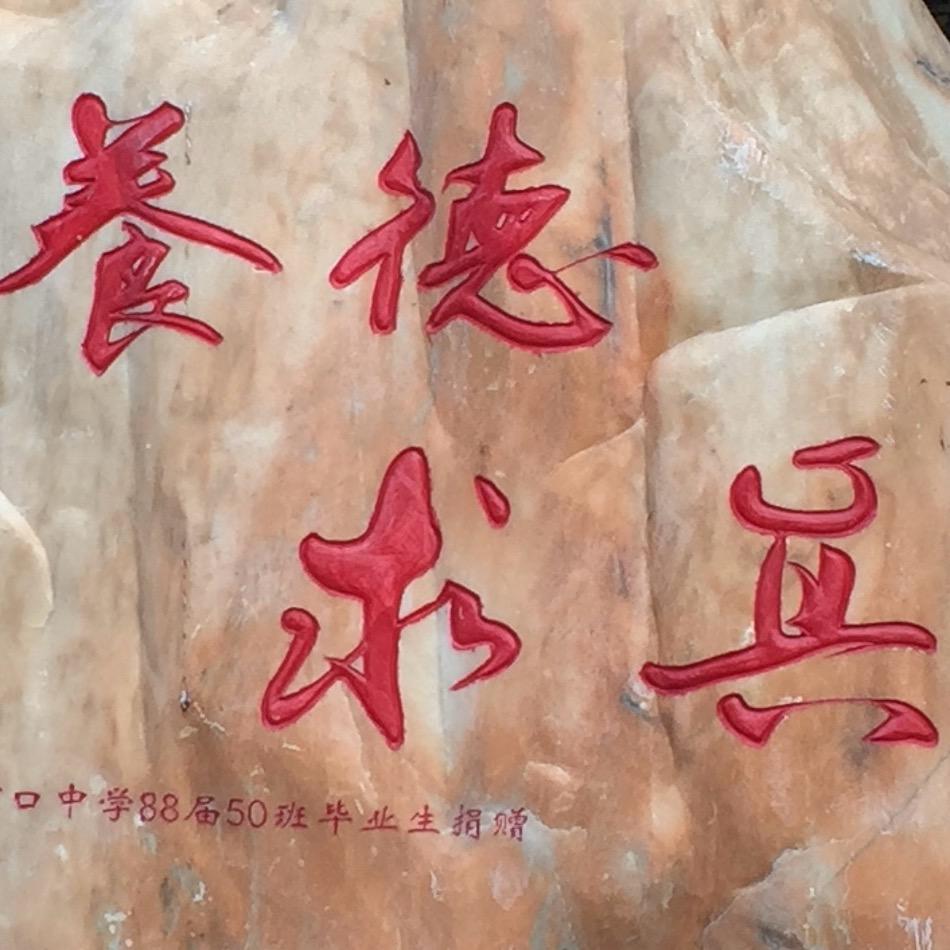 養德
求真
口中学88届50班毕业生捐赠